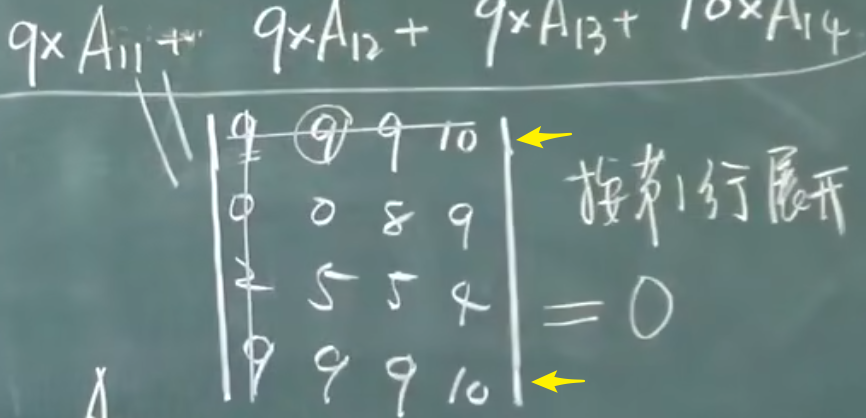 9×A₁₁+ 9×A₁₂+ 9×A₁₃+ 10×A₁₄
9 9 9 10
0 0 8 9
2 5 5 4
9 9 9 10
按第1行展开
= 0